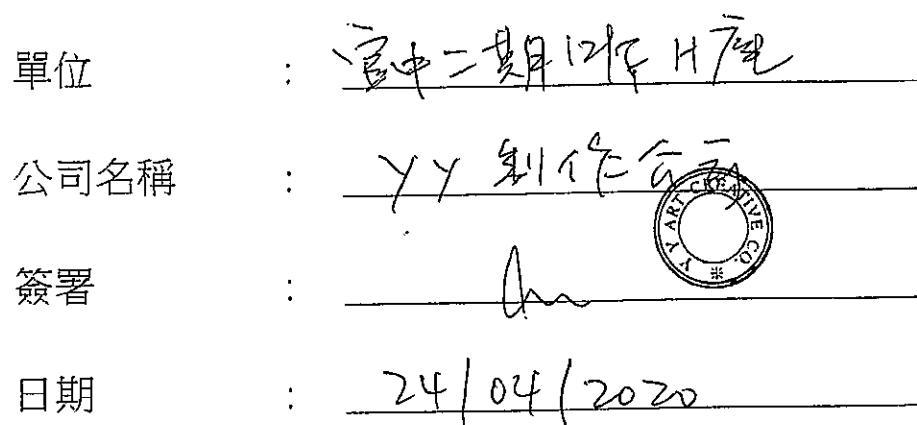 單位 : 官中二期12字H座
公司名稱 : YY 制作公司
Y Y ART CREATIVE CO.
簽署 :
日期 : 24/04/2020